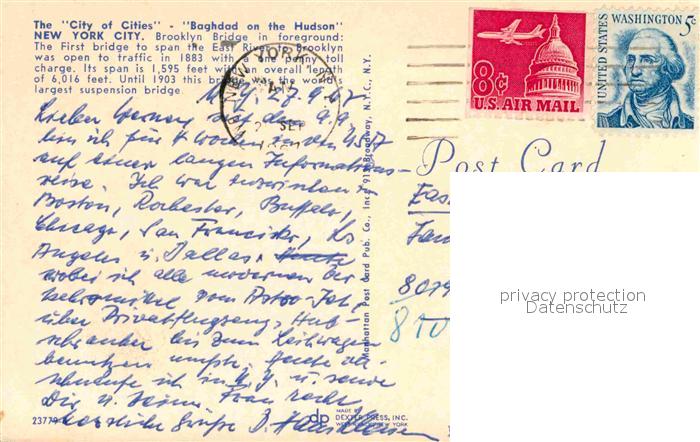 The "City of Cities" - "Baghdad on the Hudson"
NEW YORK CITY. Brooklyn Bridge in foreground:
The First bridge to span the East River to Brooklyn
was open to traffic in 1883 with a one penny toll
charge. Its span is 1,595 feet with an overall length
of 6,016 feet. Until 1903 this bridge was the world's
largest suspension bridge.
NEW YORK
SEP
8¢
U.S. AIR MAIL
WASHINGTON 5c
UNITED STATES
Post Card
N.Y. 27.9.67
Lieber Werner, seit dem 9.9.
bin ich für 4 Wochen in den USA
auf einer langen Informations-
reise. Ich war inzwischen in
Boston, Rochester, Buffalo,
Chicago, San Francisco, Los
Angeles u. Dallas,
wobei ich alle modernen Ver-
kehrsmittel vom Astro-Jet,
über Privatflugzeug, Hub-
schrauber bis zum Leihwagen
benutzen mußte. Heute
ich in N.Y. u. sende
Dir u. Deiner Frau recht
herzliche Grüße D.
Manhattan Post Card Pub. Co., Inc., 913 Broadway, N.Y.C., N.Y.
MADE BY
dp DEXTER PRESS, INC.
WEST NYACK, NEW YORK
privacy protection
Datenschutz